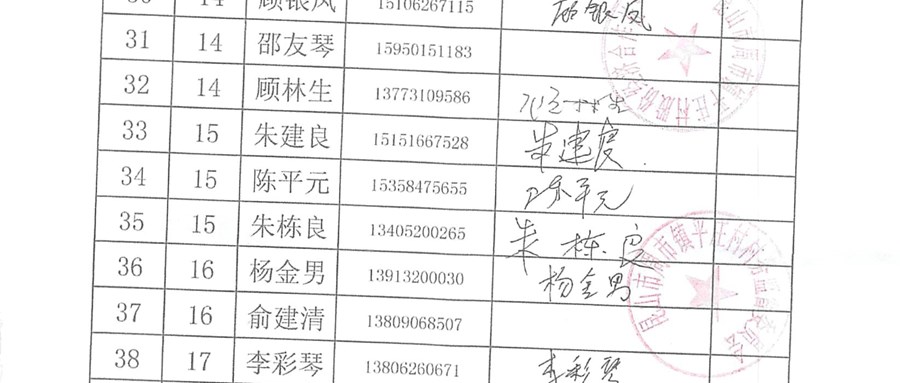 30 14 顾银凤 15106267115 顾银凤
31 14 邵友琴 15950151183
32 14 顾林生 13773109586
33 15 朱建良 15151667528 朱建良
34 15 陈平元 15358475655 陈平元
35 15 朱栋良 13405200265 朱栋良
36 16 杨金男 13913200030 杨金男
37 16 俞建清 13809068507
38 17 李彩琴 13806260671 李彩琴